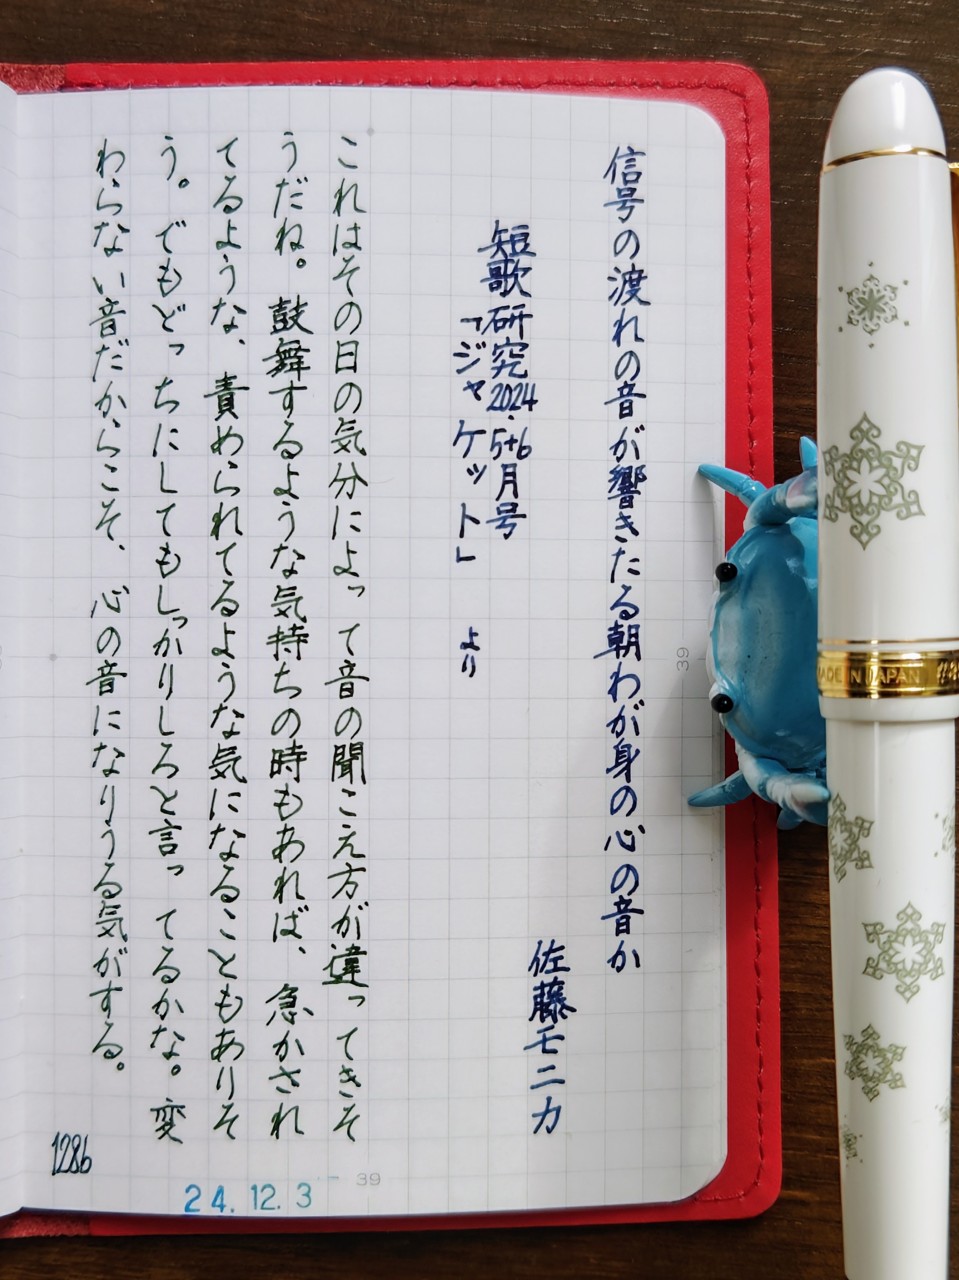 信号の渡れの音が響きたる朝わが身の心の音か
佐藤モニカ
短歌研究2024.5+6月号
「ジャケット」 より
これはその日の気分によって音の聞こえ方が違ってきそ
うだね。鼓舞するような気持ちの時もあれば、急かされ
てるような、責められてるような気になることもありそ
う。でもどっちにしてもしっかりしろと言ってるかな。変
わらない音だからこそ、心の音になりうる気がする。
1286
24.12.3
39
39
MADE IN JAPAN